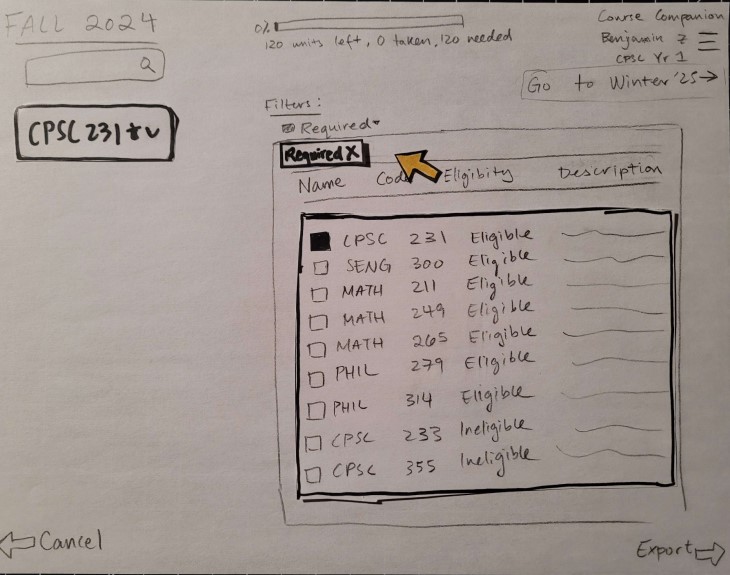 FALL 2024
0%
120 units left, 0 taken, 120 needed
Course Companion
Benjamin Z
CPSC Yr 1
Go to Winter '25
CPSC 231
Filters:
Required
Required X
Name Code Eligibity Description
CPSC 231 Eligible
SENG 300 Eligible
MATH 211 Eligible
MATH 249 Eligible
MATH 265 Eligible
PHIL 279 Eligible
PHIL 314 Eligible
CPSC 233 Ineligible
CPSC 355 Ineligible
Cancel
Export